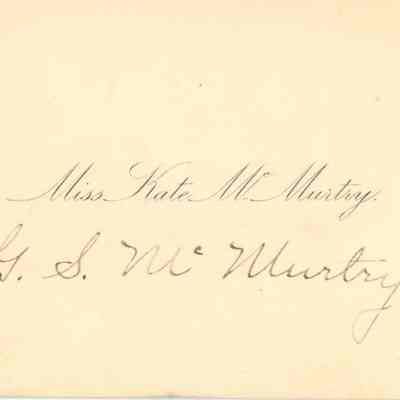 Miss Kate Mc Murtry.
G. S. Mc Murtry